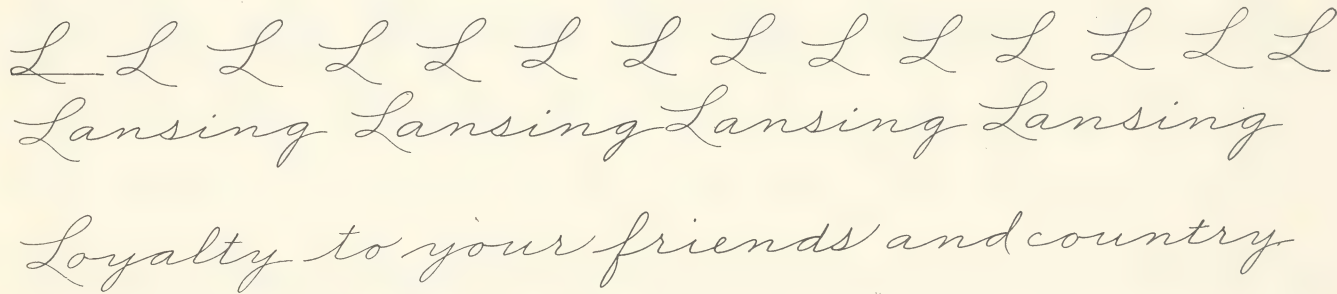 L L L L L L L L L L L L L L
Lansing Lansing Lansing Lansing
Loyalty to your friends and country